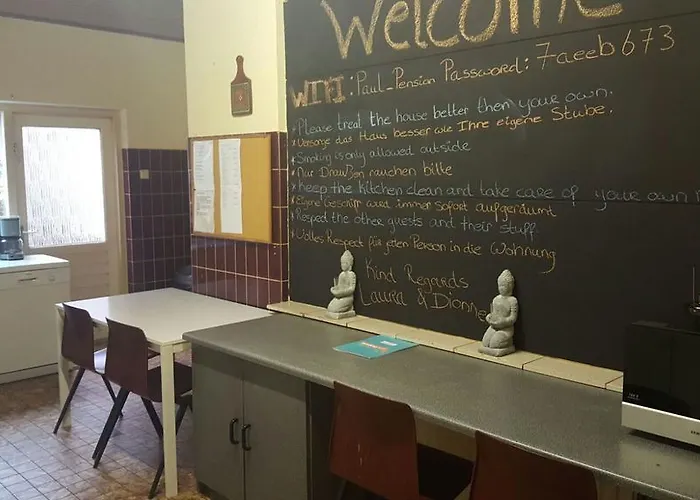 Welcome
WIFI: Paul_Pension Password: 7aeeb673
* Please treat the house better then your own.
* Versorge das Haus besser wie Ihre eigene Stube.
* Smoking is only allowed outside
* Nur Draußen rauchen bitte
* Keep the kitchen clean and take care of your own
* Eigene Geschirr ward immer sofort aufgeräumt
* Respect the other guests and their stuff
* Volles Respect für jeten Person in die Wohnung
Kind Regards
Laura & Dionne